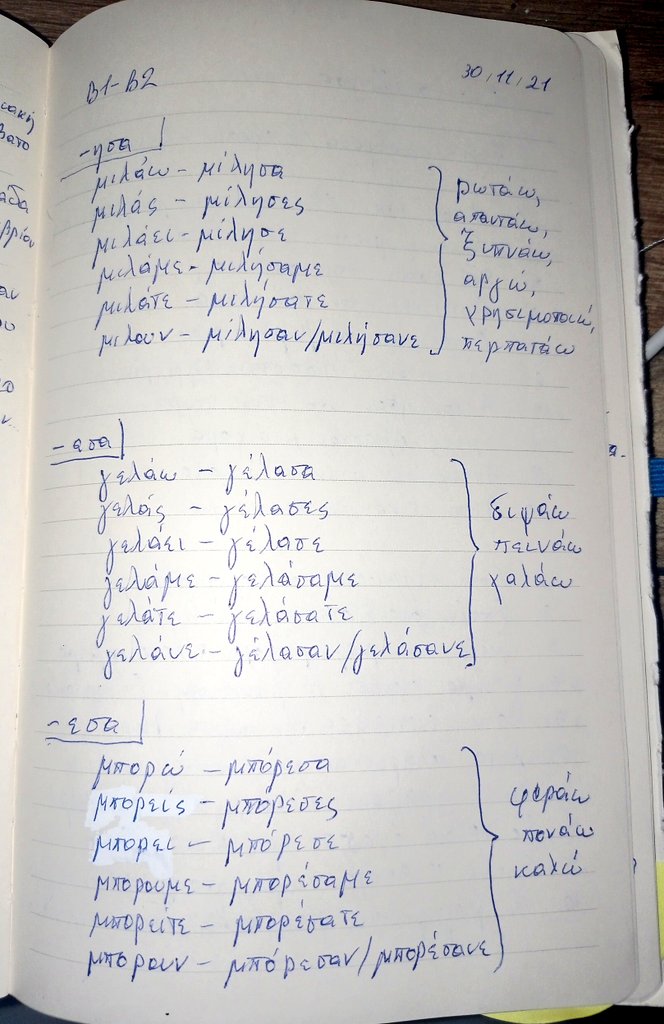 B1-B2
30/11/21
-ησα
μιλάω - μίλησα
μιλάς - μίλησες
μιλάει - μίλησε
μιλάμε - μιλήσαμε
μιλάτε - μιλήσατε
μιλουν - μίλησαν/μιλήσανε
ρωτάω,
απαντάω,
ξυπνάω,
αργώ,
χρησιμοποιώ,
περπατάω
-ασα
γελάω - γέλασα
γελάς - γέλασες
γελάει - γέλασε
γελάμε - γελάσαμε
γελάτε - γελάσατε
γελάνε - γέλασαν/γελάσανε
διψάω
πεινάω
χαλάω
-εσα
μπορώ - μπόρεσα
μπορείς - μπόρεσες
μπορει - μπόρεσε
μπορουμε - μπορέσαμε
μπορείτε - μπορέσατε
μπορουν - μπόρεσαν/μπορέσανε
φοράω
πονάω
καλώ